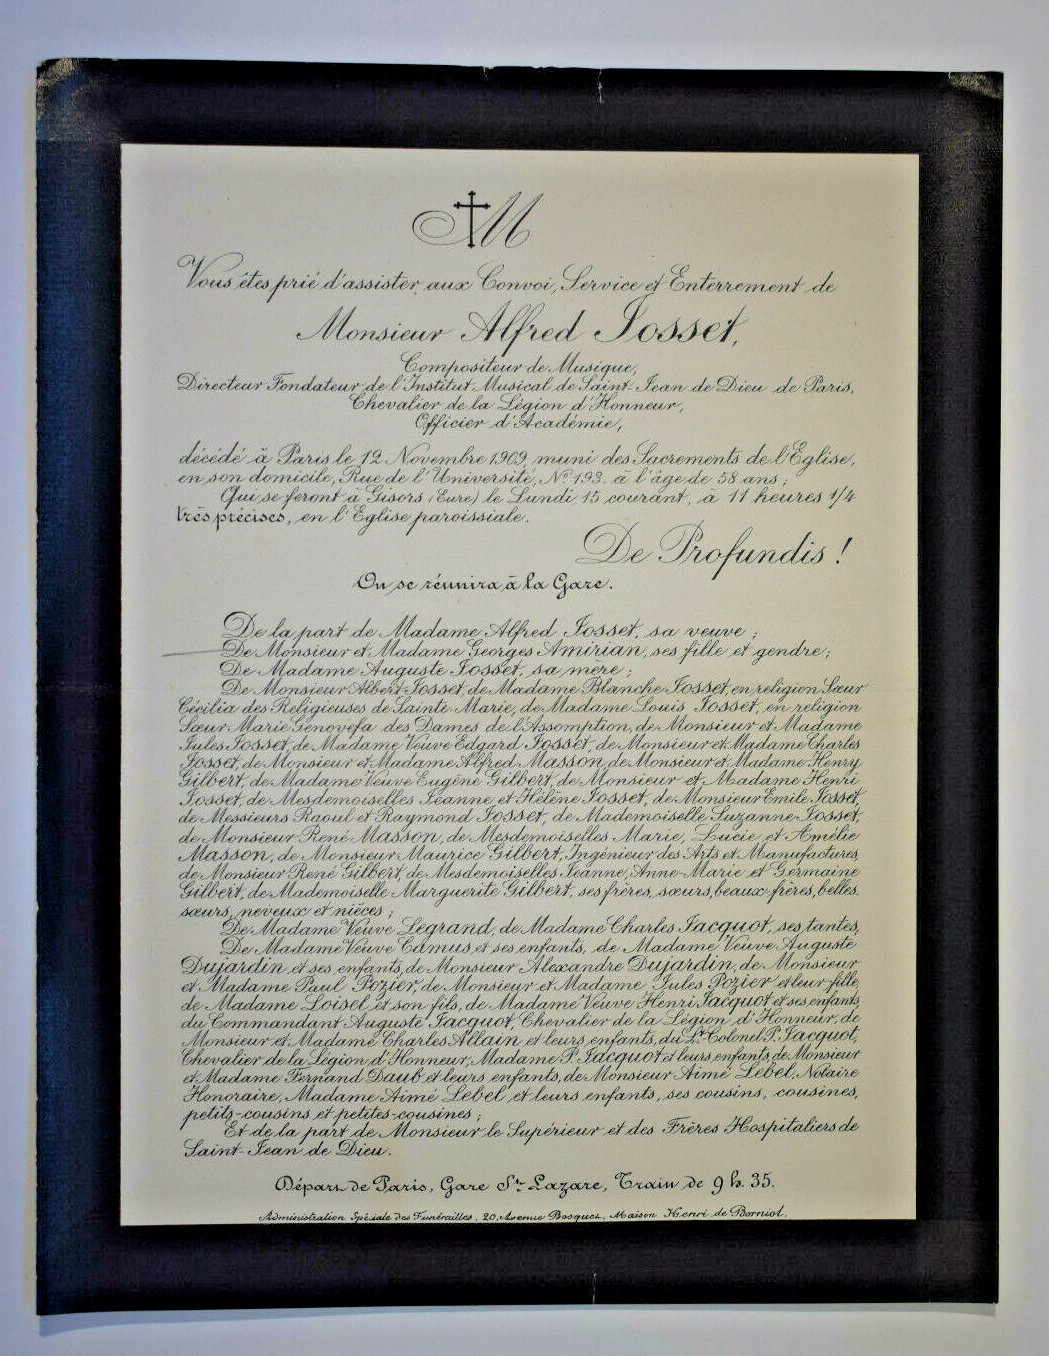 M
Vous êtes prié d'assister aux Convoi, Service et Enterrement de
Monsieur Alfred Josset,
Compositeur de Musique,
Directeur Fondateur de l'Institut Musical de Saint-Jean de Dieu de Paris,
Chevalier de la Légion d'Honneur,
Officier d'Académie,
décédé à Paris le 12 Novembre 1909, muni des Sacrements de l'Eglise,
en son domicile, Rue de l'Université, Nº 193, à l'âge de 58 ans;
Qui se feront à Gisors (Eure) le Lundi, 15 courant, à 11 heures 1/4
très précises, en l'Eglise paroissiale.
De Profundis !
On se réunira à la Gare.
De la part de Madame Alfred Josset, sa veuve;
De Monsieur et Madame Georges Amirian, ses fille et gendre;
De Madame Auguste Josset, sa mère;
De Monsieur Albert Josset, de Madame Blanche Josset, en religion Sœur
Cécilia des Religieuses de Sainte-Marie, de Madame Louis Josset, en religion
Sœur Marie Genovefa des Dames de l'Assomption, de Monsieur et Madame
Jules Josset, de Madame Veuve Edgard Josset, de Monsieur et Madame Charles
Josset, de Monsieur et Madame Alfred Masson, de Monsieur et Madame Henry
Gilbert, de Madame Veuve Eugène Gilbert, de Monsieur et Madame Henri
Josset, de Mesdemoiselles Jeanne et Hélène Josset, de Monsieur Emile Josset,
de Messieurs Raoul et Raymond Josset, de Mademoiselle Suzanne Josset,
de Monsieur René Masson, de Mesdemoiselles Marie, Lucie et Amélie
Masson, de Monsieur Maurice Gilbert, Ingénieur des Arts et Manufactures,
de Monsieur René Gilbert, de Mesdemoiselles Jeanne, Anne-Marie et Germaine
Gilbert, de Mademoiselle Marguerite Gilbert, ses frères, sœurs, beaux-frères, belles
sœurs, neveux et nièces;
De Madame Veuve Legrand, de Madame Charles Jacquot, ses tantes,
De Madame Veuve Camus et ses enfants, de Madame Veuve Auguste
Dujardin et ses enfants, de Monsieur Alexandre Dujardin, de Monsieur
et Madame Paul Pozier, de Monsieur et Madame Jules Pozier et leur fille,
de Madame Loisel et son fils, de Madame Veuve Henri Jacquot et ses enfants,
du Commandant Auguste Jacquot, Chevalier de la Légion d'Honneur, de
Monsieur et Madame Charles Allain et leurs enfants, du Lt-Colonel P. Jacquot,
Chevalier de la Légion d'Honneur, Madame P. Jacquot et leurs enfants, de Monsieur
et Madame Fernand Daub et leurs enfants, de Monsieur Aimé Lebel, Notaire
Honoraire, Madame Aimé Lebel et leurs enfants, ses cousins, cousines,
petits-cousins et petites-cousines;
Et de la part de Monsieur le Supérieur et des Frères Hospitaliers de
Saint-Jean de Dieu.
Départ de Paris, Gare St Lazare, Train de 9 h. 35.
Administration Spéciale des Funérailles, 20, Avenue Bosquet, Maison Henri de Borniol.